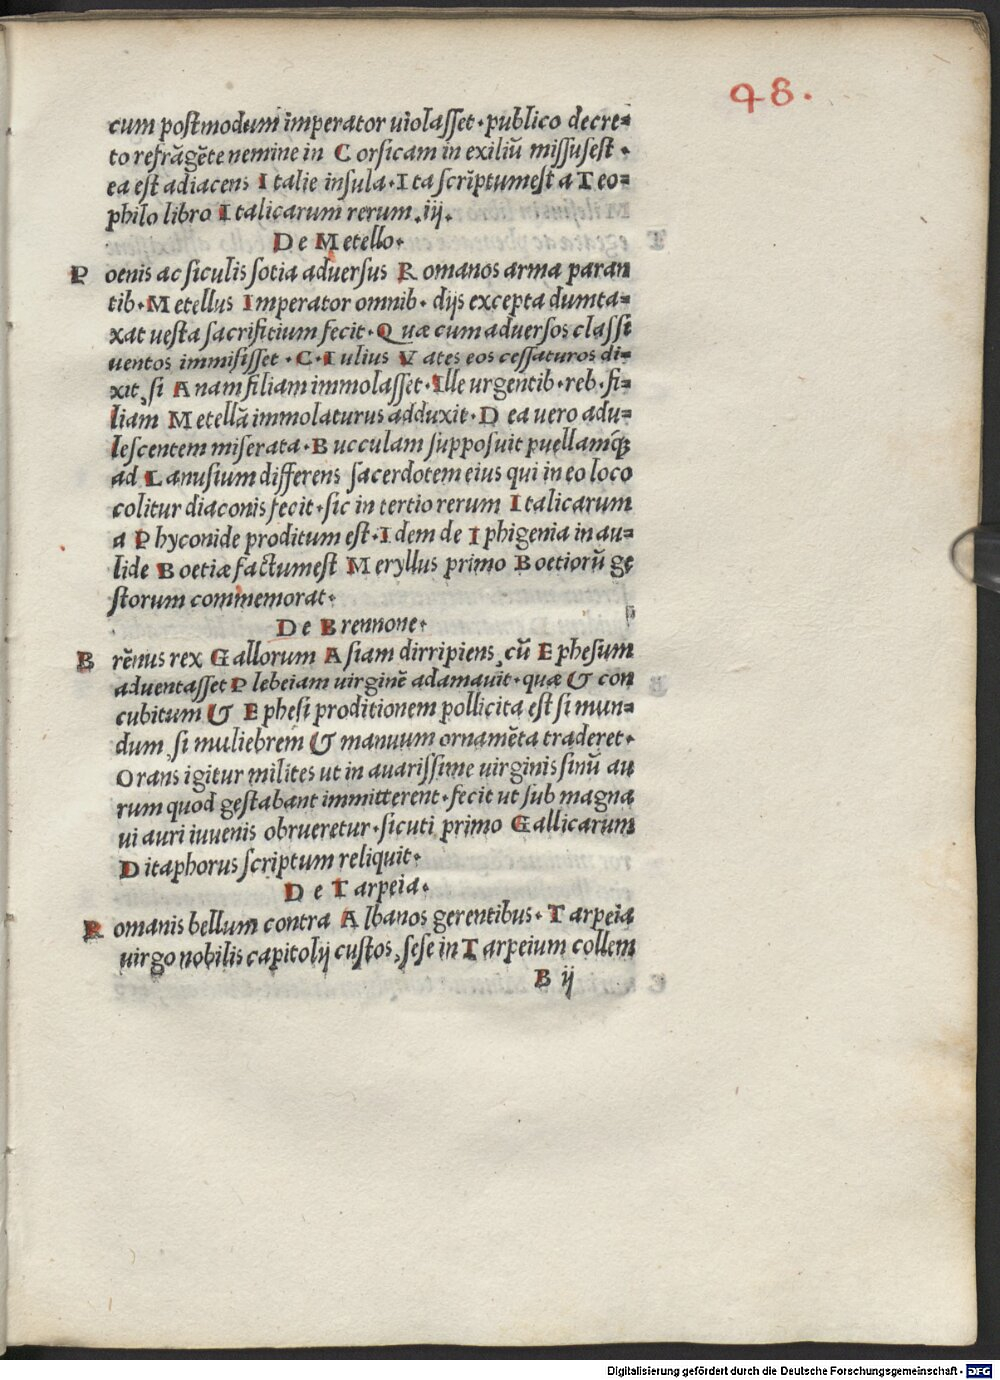 48.
cum postmodum imperator uiolasset · publico decre=
to refrāgēte nemine in Corsicam in exiliū missusest ·
ea est adiacens Italie insula · Ita scriptumest a Teo=
philo libro Italicarum rerum .iij.
De Metello ·
Poenis ac siculis sotia aduersus Romanos arma paran
tib · Metellus Imperator omnib · dijs excepta dumta=
xat uesta sacrifitium fecit · Quæ cum aduersos classi
uentos immisisset · C · Iulius Vates eos cessaturos di=
xit, si Anam filiam immolasset · Ille urgentib · reb · fi=
liam Metellā immolaturus adduxit · Dea uero adu=
lescentem miserata · Bucculam supposuit puellamqꝫ
ad Lanusium differens sacerdotem eius qui in eo loco
colitur diaconis fecit · sic in tertio rerum Italicarum
a Phyconide proditum est · Idem de Iphigenia in au=
lide Boetiæ factumest Meryllus primo Boetiorū ge
storum commemorat ·
De Brennone ·
Brēnus rex Gallorum Asiam dirripiens, cū Ephesum
aduentasset Plebeiam uirginē adamauit · quæ & con
cubitum & Ephesi proditionem pollicita est si mun=
dum, si muliebrem & manuum ornamēta traderet ·
Orans igitur milites ut in auarissime uirginis sinū au
rum quod gestabant immitterent · fecit ut sub magna
ui auri iuuenis obrueretur · sicuti primo Gallicarum
Ditaphorus scriptum reliquit ·
De Tarpeia ·
Romanis bellum contra Albanos gerentibus · Tarpeia
uirgo nobilis capitolij custos, sese in Tarpeium collem
B ij
Digitalisierung gefördert durch die Deutsche Forschungsgemeinschaft - DFG